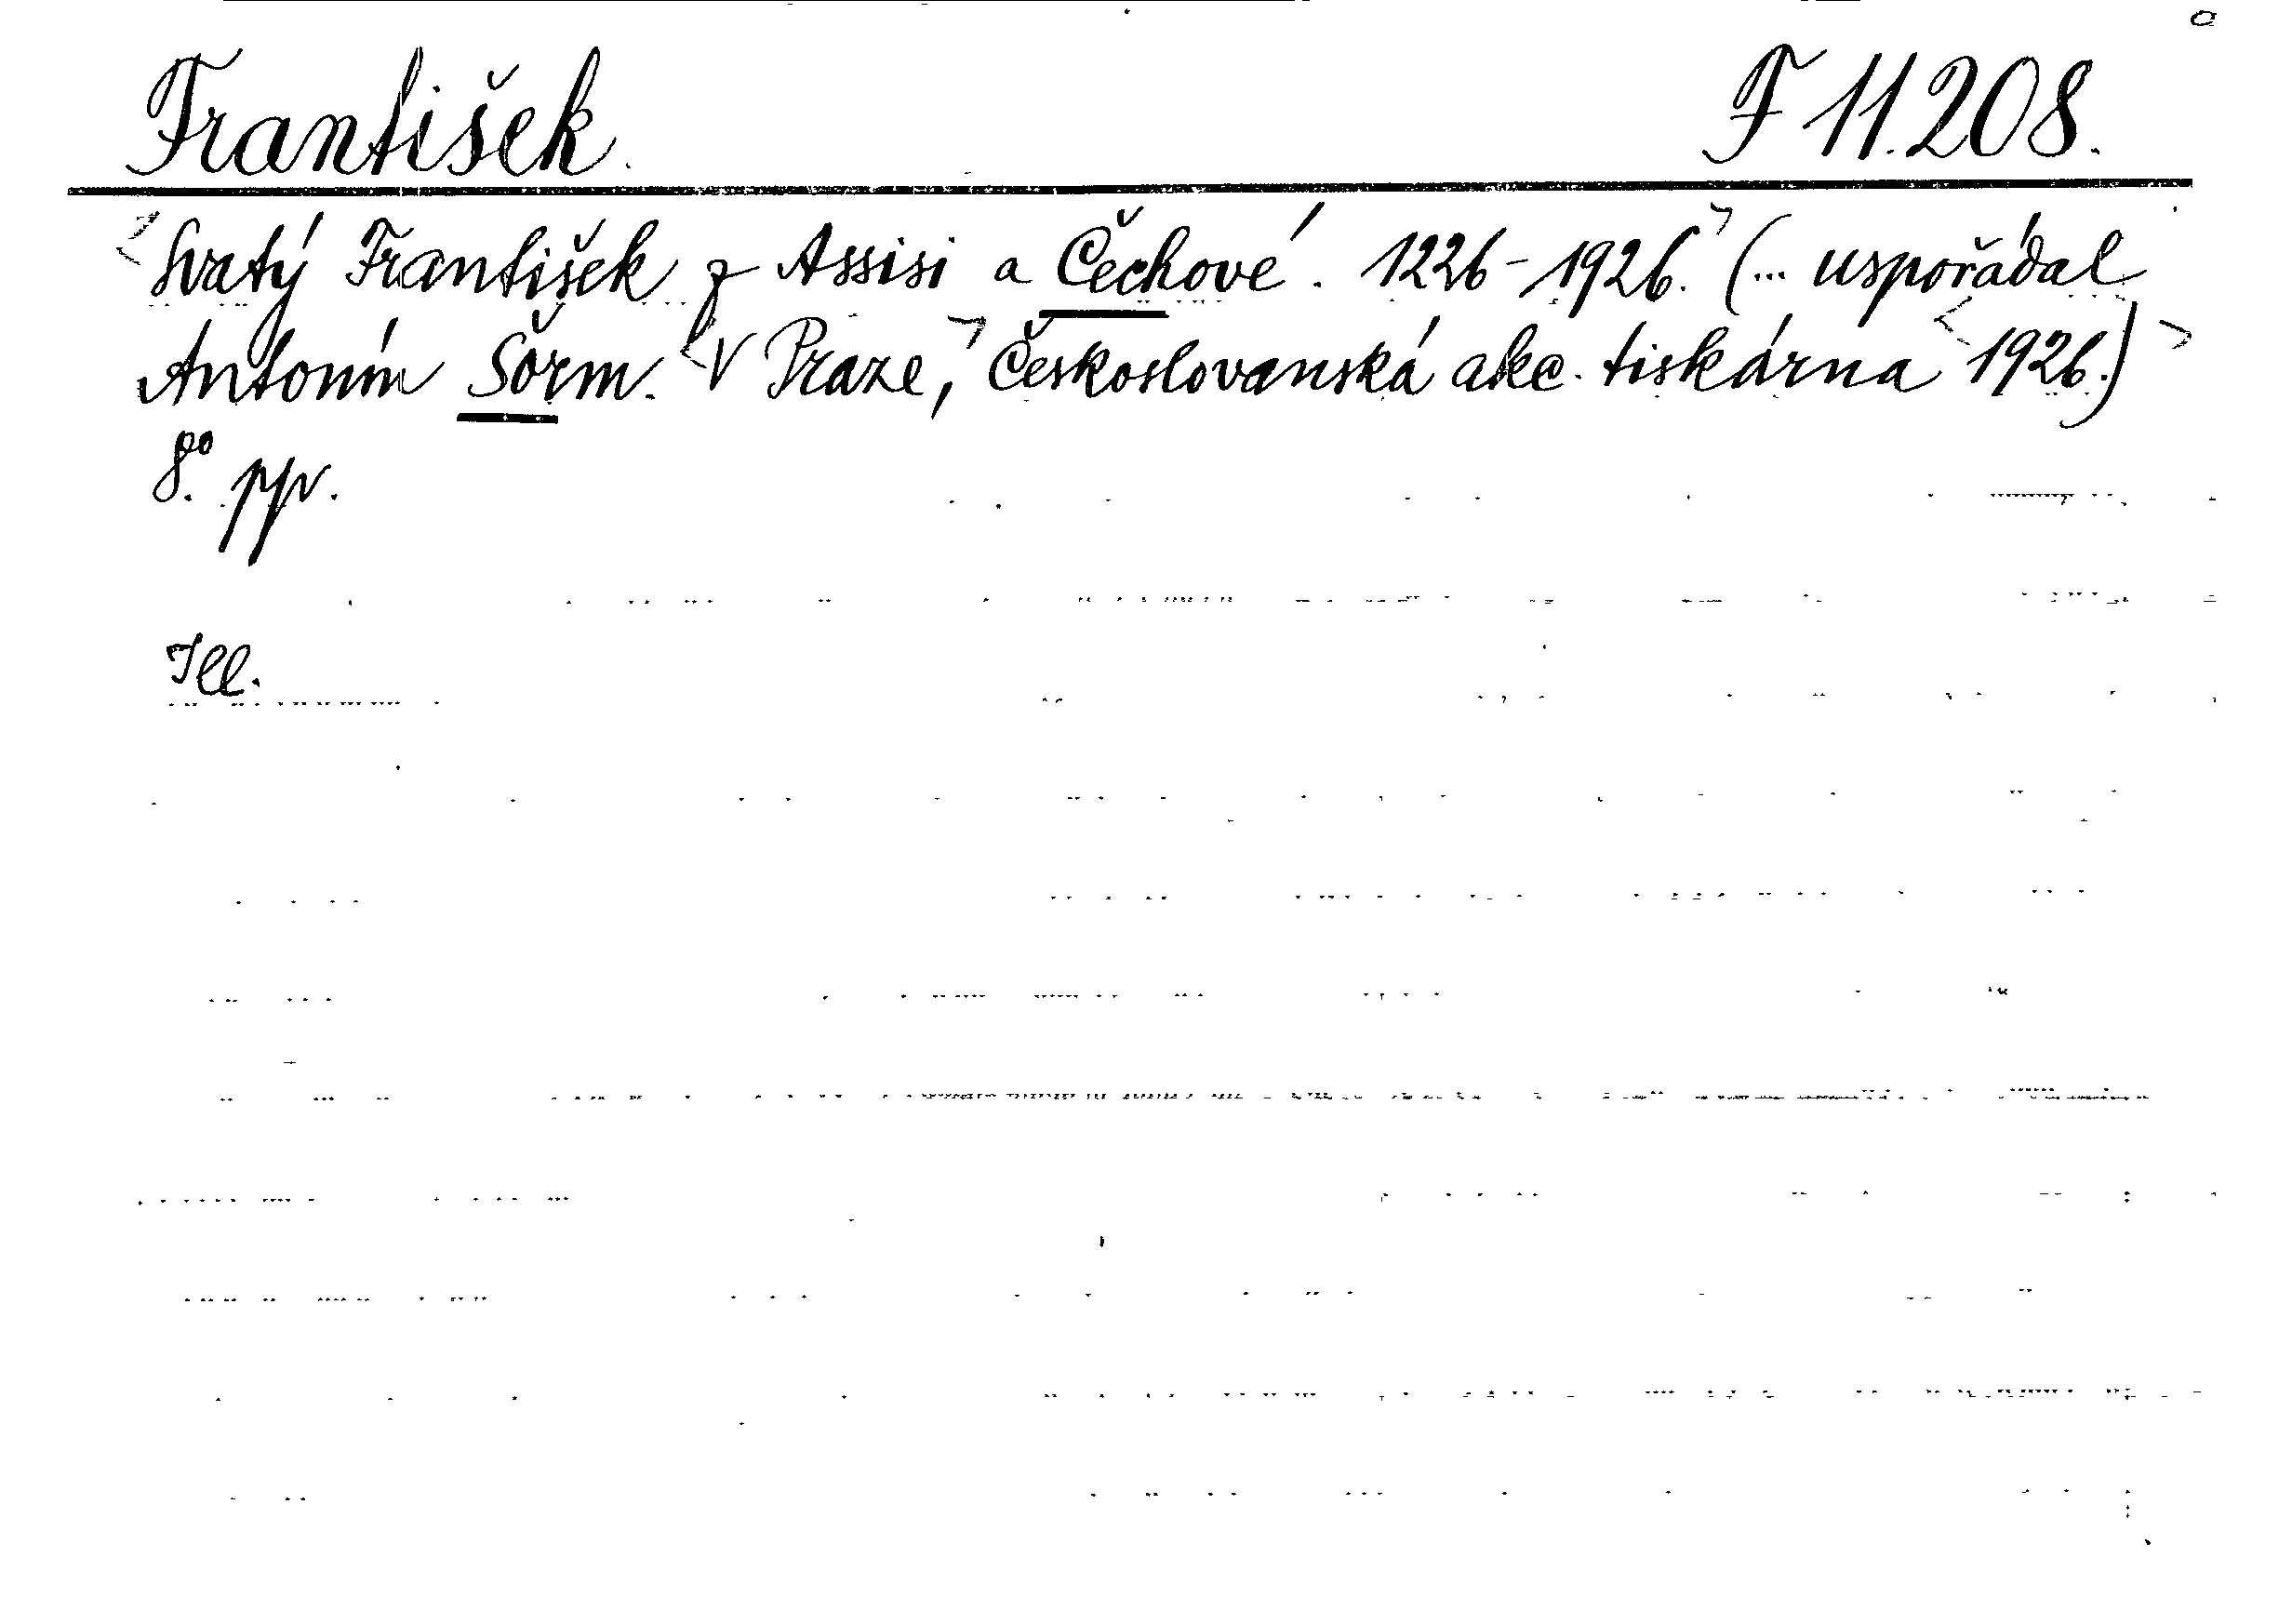 František. F 11.208.
<Svatý František z Assisi a Čechové. 1226-1926.> (... uspořádal
Antonín Šorm. <V Praze,> Českoslovanská akc. tiskárna <1926.)>
8°. ppr.
Ill.